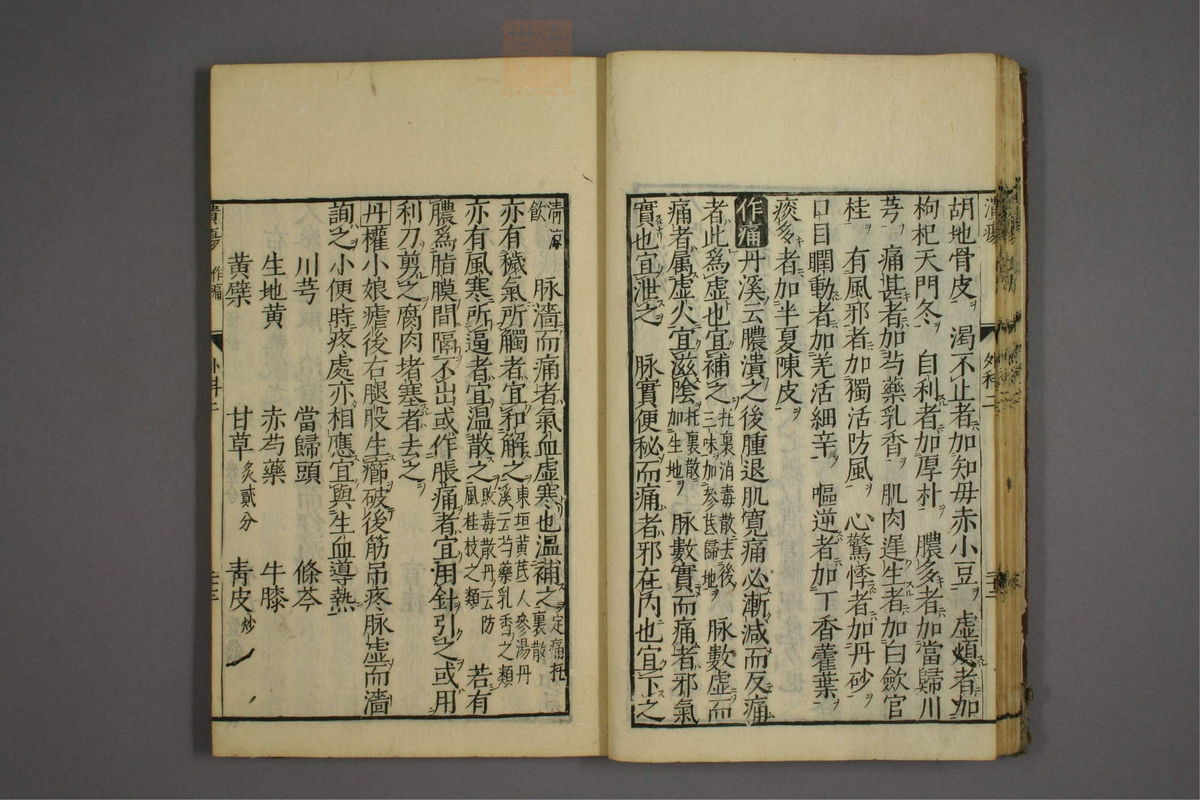 胡地骨皮 渴不止者加知毋赤小豆 虛煩者加
枸杞天門冬 自利者加厚朴 膿多者加當歸川
芎 痛甚者加芍藥乳香 肌肉遲生者加白歛官
桂 有風邪者加獨活防風 心驚悸者加丹砂
口目瞤動者加羌活細辛 嘔逆者加丁香藿葉
痰多者加半夏陳皮
作痛丹溪云膿潰之後腫退肌寛痛必漸減而反痛
者此爲虛也宜補之托裏消毒散去後三味加參芪歸地 脉數虛而
痛者属虛火宜滋陰托裏散加生地 脉數實而痛者邪氣
實也宜泄之 脉實便秘而痛者邪在內也宜下之
飲 脉濇而痛者氣血虛寒也溫補之定痛托裏散
亦有穢氣所觸者宜和解之東垣黃芪人參湯丹溪云芍藥乳香之類
亦有風寒所逼者宜溫散之敗毒散丹云防風桂枝之類 若有
膿爲脂膜間隔不出或作脹痛者宜用針引之或用
利刀剪之腐肉堵塞者去之
丹權小娘瘧後右腿股生癤破後筋吊疼脉虛而濇
詢之小便時疼處亦相應宜與生血導熱
川芎 當歸頭 條芩
生地黄 赤芍藥 牛膝
黄檗 甘草炙貳分 靑皮炒
作痛 外科二
外科二